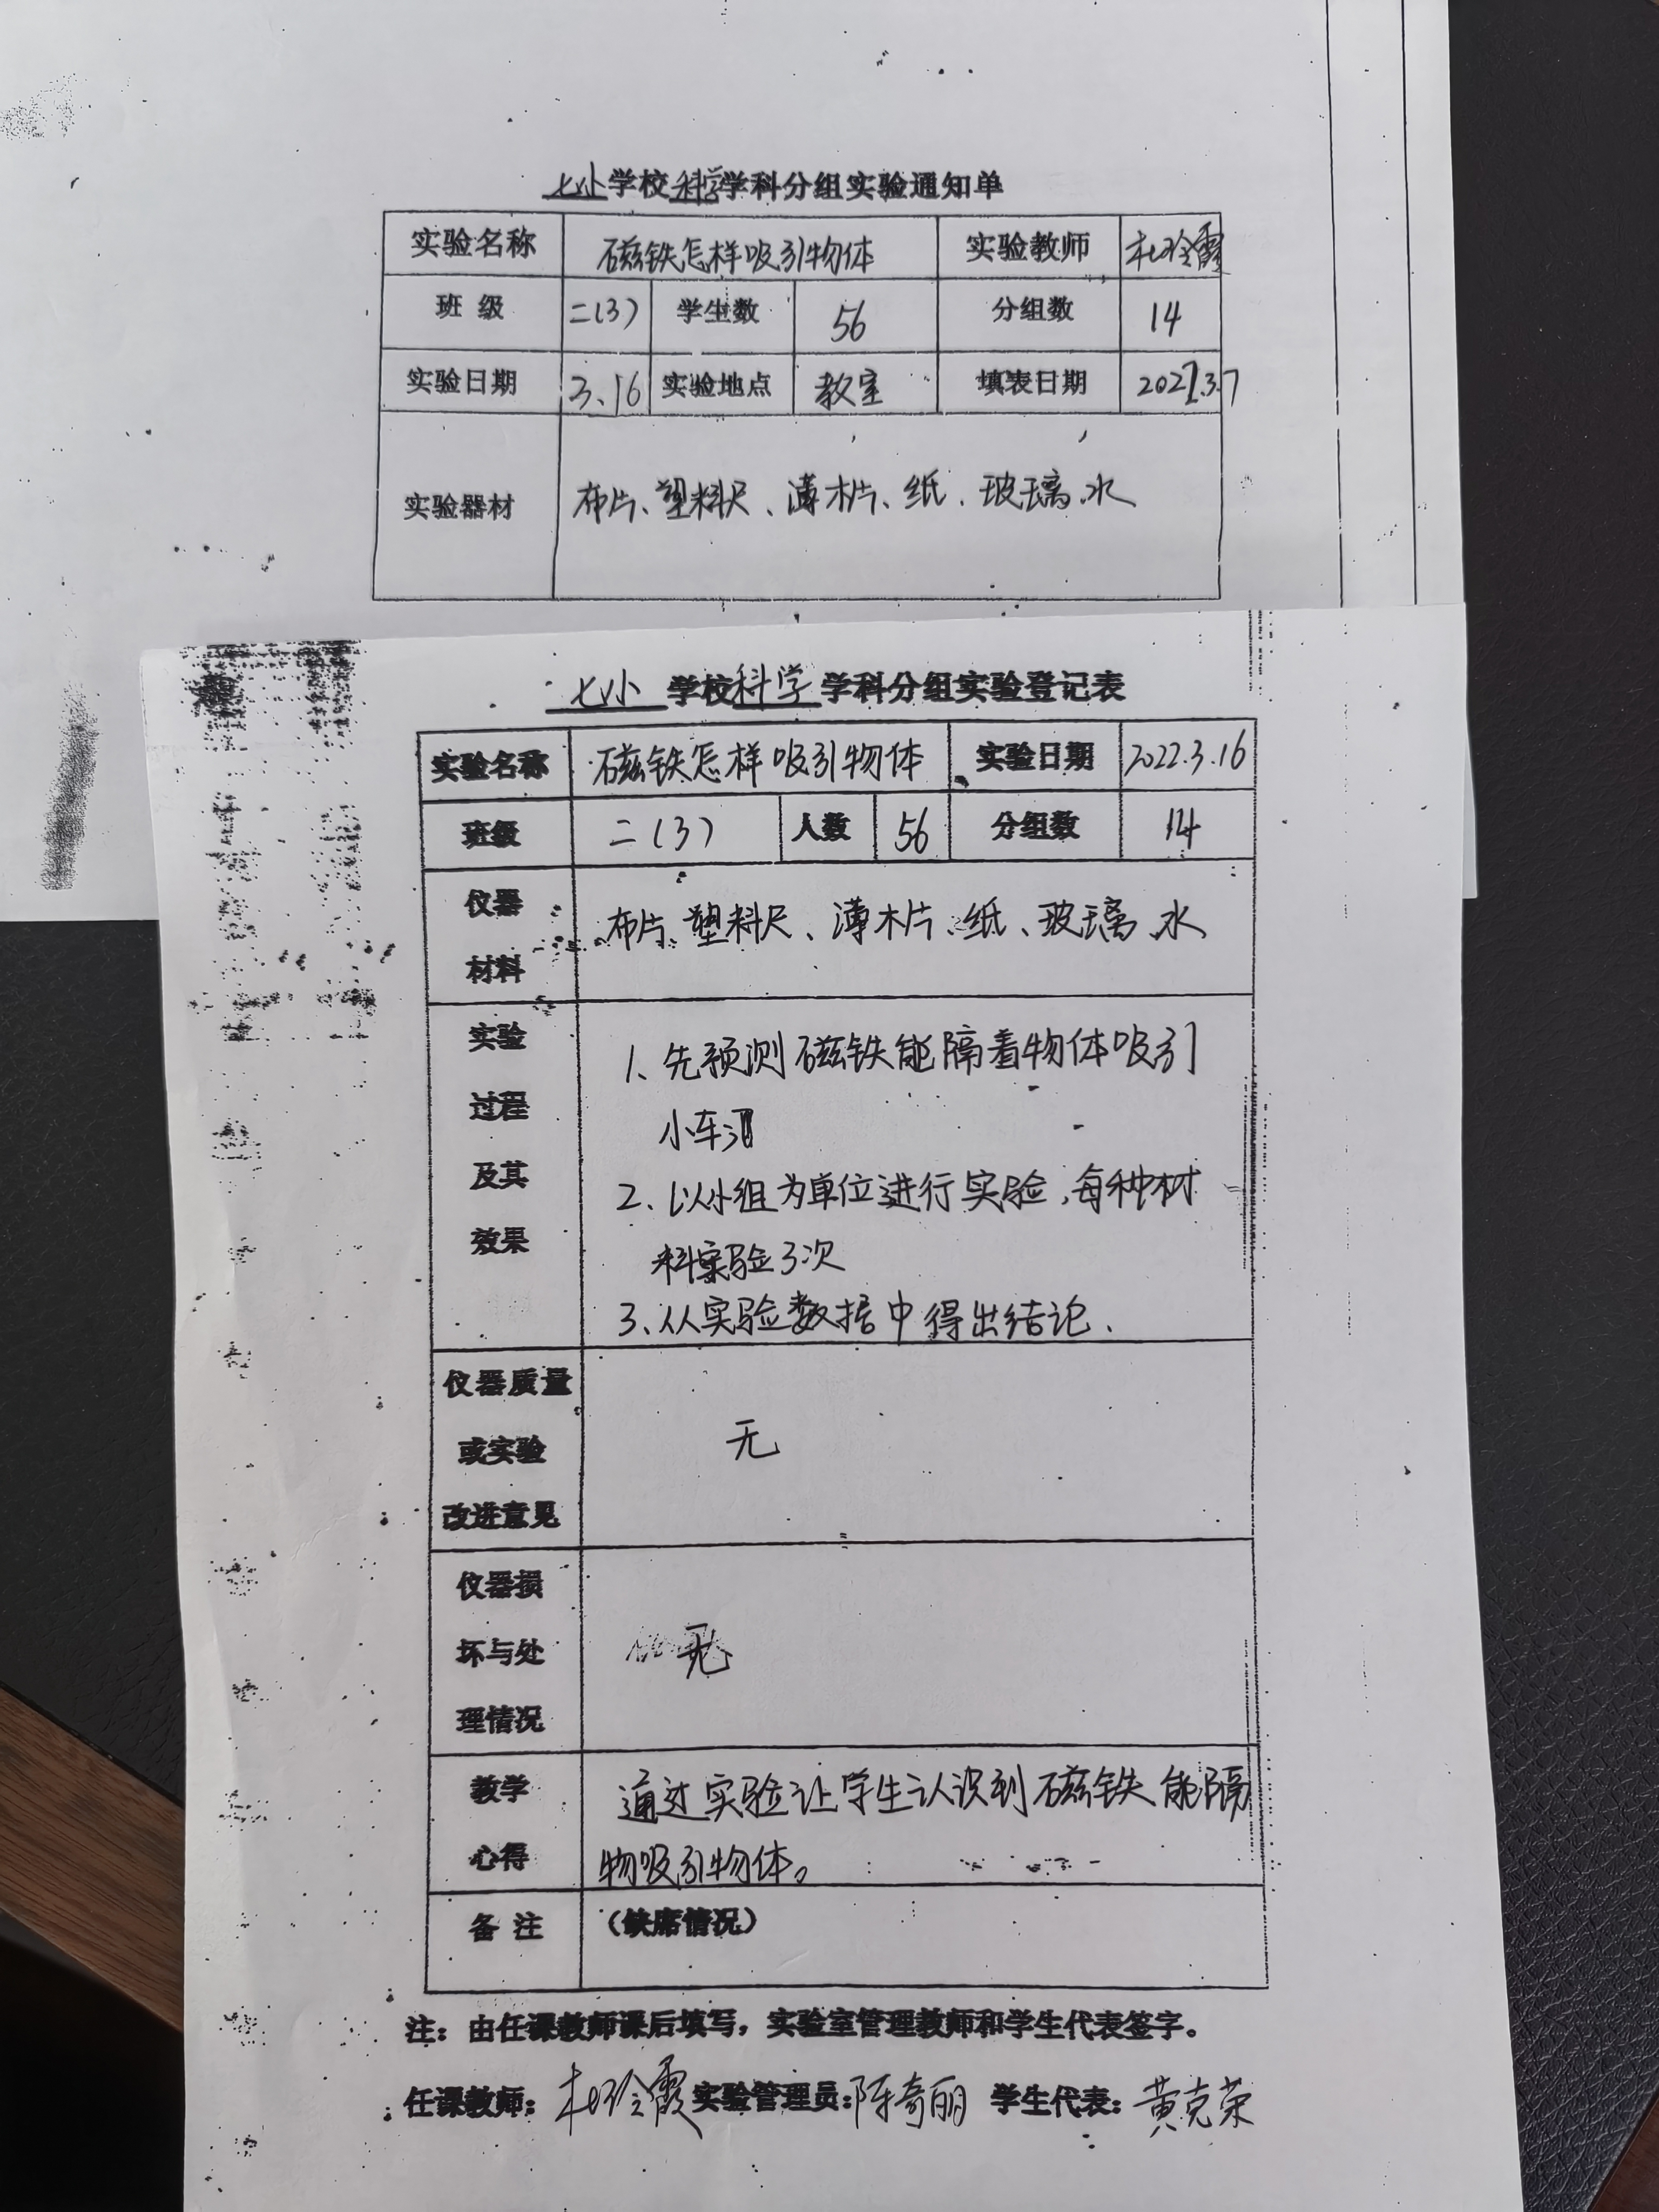 七小学校科学学科分组实验通知单
实验名称 磁铁怎样吸引物体 实验教师 杜玲霞
班 级 二(3) 学生数 56 分组数 14
实验日期 3.16 实验地点 教室 填表日期 2022.3.7
实验器材 布片、塑料尺、薄木片、纸、玻璃、水
七小 学校科学 学科分组实验登记表
实验名称 磁铁怎样吸引物体 实验日期 2022.3.16
班级 二(3) 人数 56 分组数 14
仪器
布片、塑料尺、薄木片、纸、玻璃、水
材料
实验
1、先预测磁铁能隔着物体吸引
过程
小车
及其
2、以小组为单位进行实验,每种材
效果
料实验3次
3、从实验数据中得出结论.
仪器质量
或实验 无
改进意见
仪器损
坏与处 无
理情况
教学 通过实验让学生认识到磁铁能隔
心得 物吸引物体。
备 注 (缺席情况)
注:由任课教师课后填写,实验室管理教师和学生代表签字。
任课教师:杜玲霞 实验管理员:陈奇丽 学生代表:黄克荣